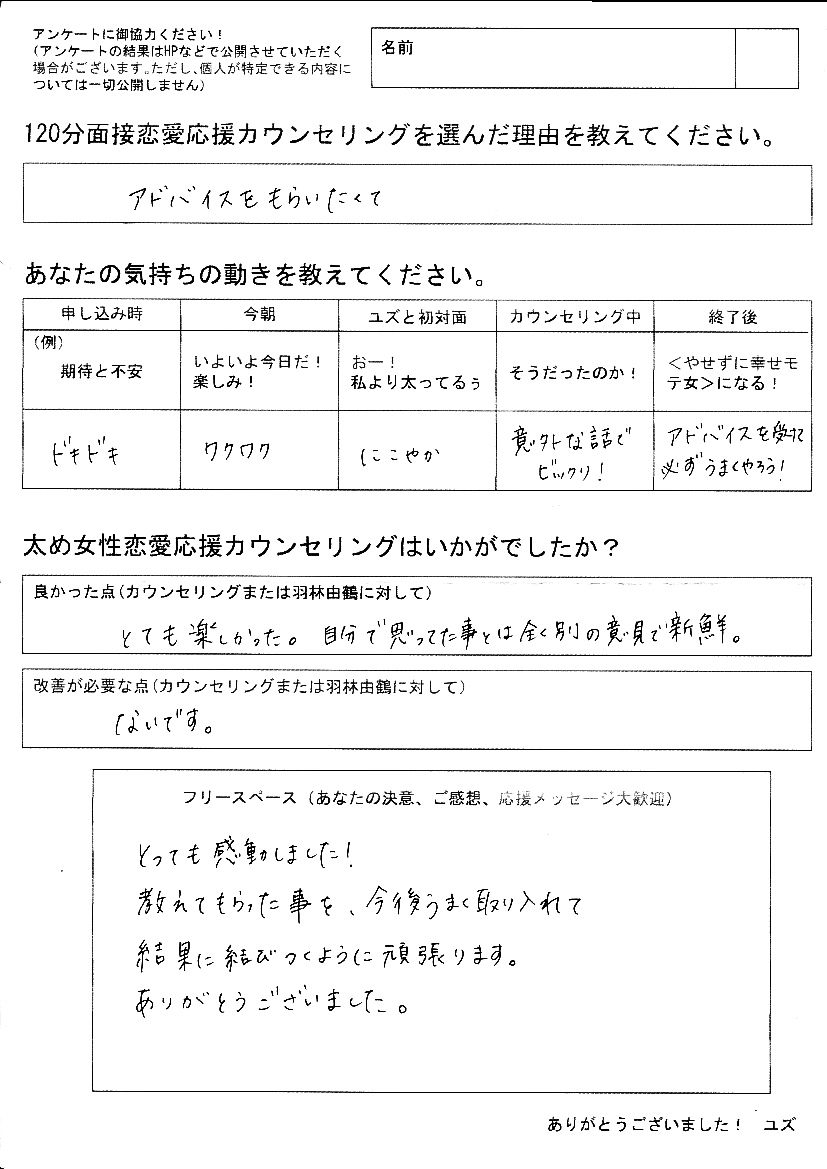 アンケートに御協力ください！
（アンケートの結果はHPなどで公開させていただく
場合がございます。ただし、個人が特定できる内容に
ついては一切公開しません）
名前
120分面接恋愛応援カウンセリングを選んだ理由を教えてください。
アドバイスをもらいたくて
あなたの気持ちの動きを教えてください。
申し込み時 今朝 ユズと初対面 カウンセリング中 終了後
（例）
期待と不安
いよいよ今日だ！
楽しみ！
おー！
私より太ってるぅ
そうだったのか！
＜やせずに幸せモ
テ女＞になる！
ドキドキ
ワクワク
にこやか
意外な話で
ビックリ！
アドバイスを受けて
必ずうまくやろう！
太め女性恋愛応援カウンセリングはいかがでしたか？
良かった点(カウンセリングまたは羽林由鶴に対して)
とても楽しかった。自分で思ってた事とは全く別の意見で新鮮。
改善が必要な点(カウンセリングまたは羽林由鶴に対して)
ないです。
フリースペース（あなたの決意、ご感想、応援メッセージ大歓迎）
とっても感動しました！
教えてもらった事を、今後うまく取り入れて
結果に結びつくように頑張ります。
ありがとうございました。
ありがとうございました！　ユズ